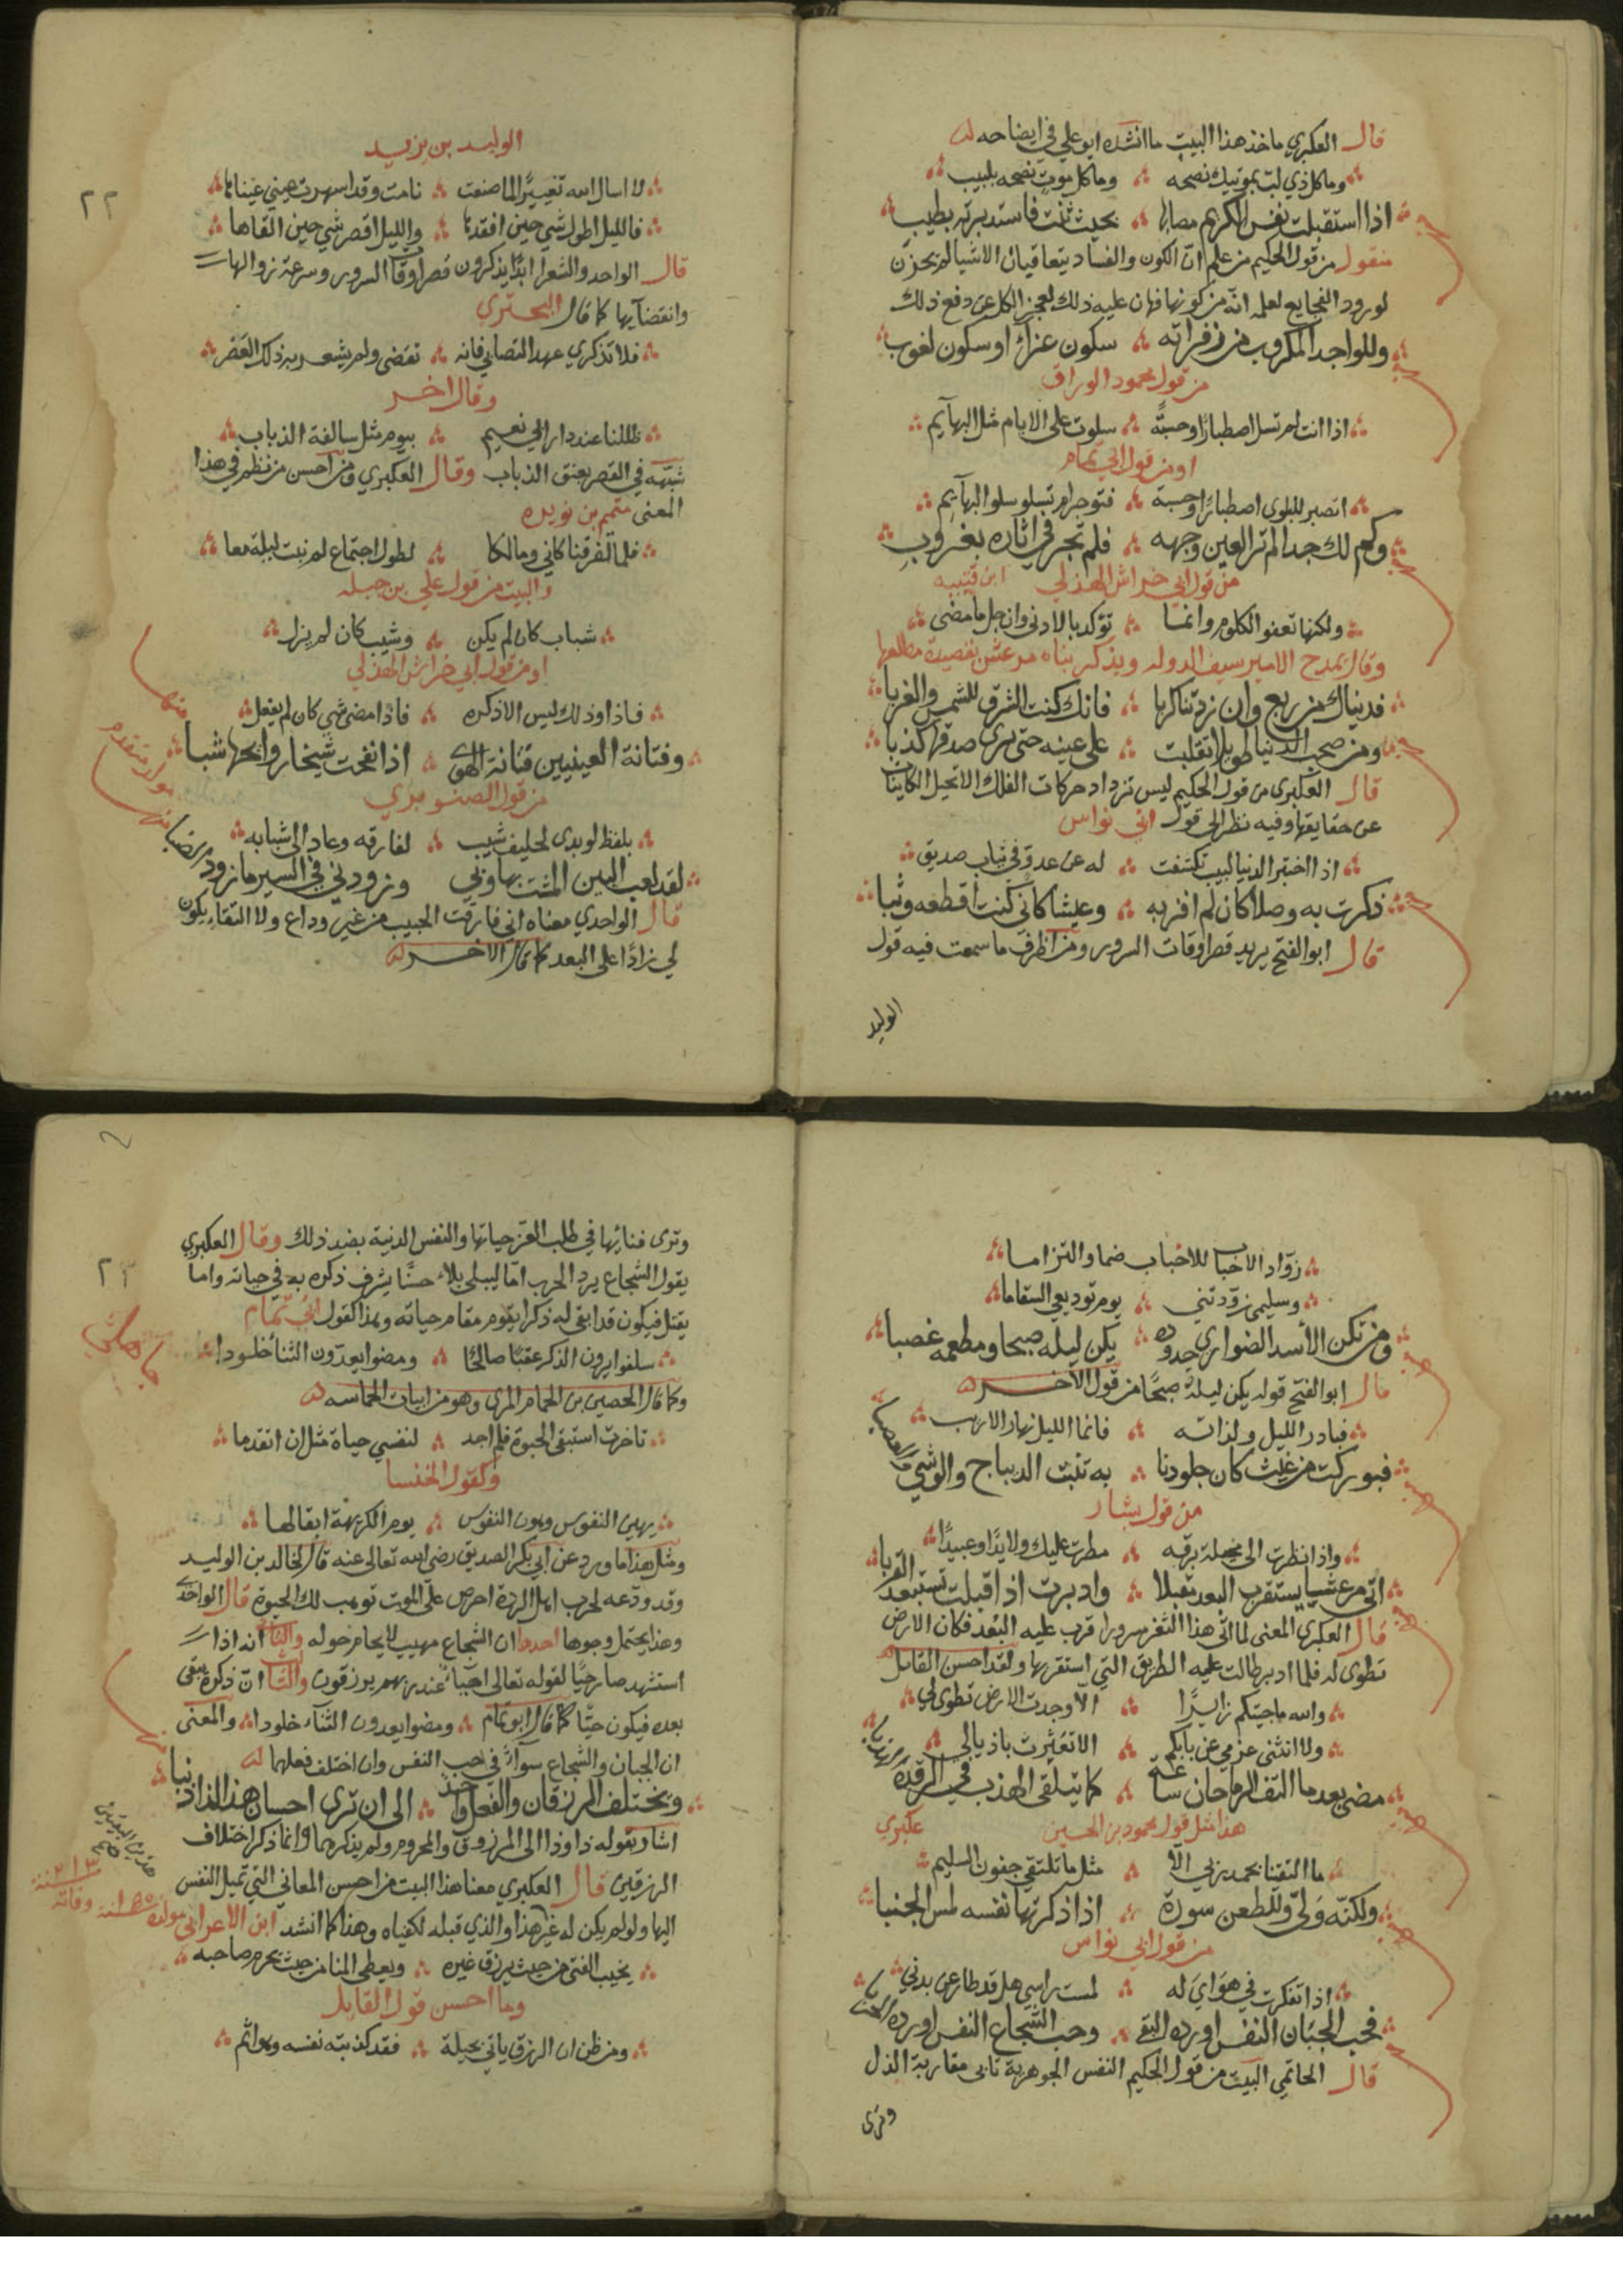 قال العكبري ماخذ هذا البيت ما انشده ابو علي في ايضاحه
وما كل ذي لب بموتيك نصحه وما كل موت نصحه بلبيب
اذا استقبلت نفس الكريم مصابها بخبث ثنت فاستدبرته بطيب
منقول من قول الحكيم من علم ان الكون والفساد يتعاقبان الاشيا لم يحزن
لورود الفجايع لعلمه انه من كونها فهان عليه ذلك لعجز الكل عن دفع ذلك
وللواجد المكروب من زفراته سكون عزاء او سكون لغوب
من قول محمود الوراق
اذا انت لم تسل اصطبارا وحسبة سلوت على الايام مثل البهايم
او من قول ابي تمام
اتصبر للبلوى اصطبارا وحسبة فتوجر ام تسلو سلو البهايم
وكم لك جدا لم تر العين وجهه فلم تجر في اثاره بغروب
من قول ابي خراش الهذلي ابن قتيبه
ولكنها تعفو الكلوم وانما توكد بالادنى وان جل ما مضى
وقال يمدح الامير سيف الدوله ويذكر بناه مرعش بقصيدة مطلعها
فديناك من ربع وان زدتنا كربا فانك كنت الشرق للشمس والغربا
ومن صحب الدنيا طويلا تقلبت على عينه حتى يرى صدقها كذبا
قال العكبري من قول الحكيم ليس تزداد حركات الفلك الا تحيل الكاينات
عن حقايقها وفيه نظر الى قول ابي نواس
اذا اختبر الدنيا لبيب تكشفت له عن عدو في ثياب صديق
ذكرت به وصلا كان لم افز به وعيشا كاني كنت اقطعه وثبا
قال ابو الفتح يريد قصر اوقات السرور ومن اظرف ما سمعت فيه قول
الوليد
٢٢
الوليد بن يزيد
لا اسال الله تغييرا لما صنعت نامت وقد اسهرت عيني عيناها
فالليل اطول شي حين افقدها والليل اقصر شي حين القاها
قال الواحدي والشعرا ابدا يذكرون قصر اوقات السرور وسرعة زوالها
وانقضايها كما قال البحتري
فلا تذكري عهد التصابي فانه تقضى ولم يشعر به ذلك العصر
وقال اخر
ظللنا عند دار ابي نعيم بيوم مثل سالفة الذباب
شبهه في القصر بعنق الذباب وقال العكبري ومن احسن من نظم في هذا
المعنى متمم بن نويره
فلما تفرقنا كاني ومالكا لطول اجتماع لم نبت ليلة معا
والبيت من قول علي بن جبله
شباب كان لم يكن وشيب كان لم يزل
او من قول ابي خراش الهذلي
فاذا وذلك ليس الا ذكره فاذا مضى شي كان لم يفعل
وفتانة العينين قتالة الهوى اذا نفحت شيخا روايحها شبا
من قول الصنوبري
بلفظ لو بدى لحليف شيب لفارقه وعاد الى شبابه
لقد لعب البين المشت بها وبي وزودني في السير ما زود الضبا
قال الواحدي معناه اني فارقت الحبيب من غير وداع ولا التقاء يكون
لي زادا على البعد كما قال الاخر
زواد الاحباب للاحباب ضما والتزاما
وسليمى زودتني يوم توديعي السقاما
ومن تكن الأسد الضواري جدوده يكن ليله صبحا ومطعمه غصبا
قال ابو الفتح قوله يكن ليله صبحا من قول الاخر
فبادر الليل ولذاته فانما الليل نهار الاريب
فبوركت من غيث كان جلودنا به تنبت الديباج والوشي والعصبا
من قول بشار
واذا نظرت الى مخيلة برقه مطرت عليك ولايدا وعبيدا
اتى مرعشا يستقرب البعد مقبلا وادبرت اذا قبلت تستبعد القربا
قال العكبري المعنى لما اتى هذا الثغر مسرورا قرب عليه البعد فكان الارض
تطوى له فلما ادبر طالت عليه الطريق التي استقربها ولقد احسن القايل
والله ما جيتكم زايرا الا وجدت الارض تطوى لي
ولا انثنى عزمي عن بابكم الا تعثرت باذيالي
مضى بعد ما التف الرماحان ساعة كما يتلقى الهدب في الرقدة
هذا مثل قول محمود بن الحسين عكبري
ما التقينا بحمد ربي الا مثل ما تلتقي جفون السليم
ولكنه ولى وللطعن سورة اذا ذكرتها نفسه لمس الجنبا
من قول ابي نواس
اذا تفكرت في هواي له لمست راسي هل قد طار عن بدني
فحب الجبان النفس اورده التقى وحب الشجاع النفس اورده الحربا
قال الحاتمي البيت من قول الحكيم النفس الجوهرية تابى مقاربة الذل
وترى
٢٣
وترى فنائها في طلب العز حياتها والنفس الدنية بضد ذلك وقال العكبري
يقول الشجاع يرد الحرب اما ليبلى بلاء حسنا يشرف ذكره به في حياته واما
يقتل فيكون قد ابقى له ذكرا يقوم مقام حياته وهذا كقول ابي تمام
سلفوا يرون الذكر عقبا صالحا ومضوا يعدون الثنا خلودا
وكما قال الحصين بن الحمام المري وهو من ابيات الحماسه
تاخرت استبقي الحيوة فلم اجد لنفسي حياة مثل ان اتقدما
وكقول الخنسا
يهين النفوس وهون النفوس يوم الكريهة ابقى لها
ومثل هذا ما ورد عن ابي بكر الصديق رضي الله تعالى عنه قال لخالد بن الوليد
وقد ودعه لحرب اهل الردة احرص على الموت توهب لك الحيوة قال الواحدي
وهذا يحتمل وجوها احدها ان الشجاع مهيب لا يحام حوله والثاني انه اذا
استشهد صار حيا لقوله تعالى احياء عند ربهم يرزقون والثالث ان ذكره يبقى
بعده فيكون حيا كما قال ابو تمام ومضوا يعدون الثناء خلودا والمعنى
ان الجبان والشجاع سواء في حب النفس وان اختلف فعلهما
ويختلف الرزقان والفعل واحد الى ان ترى احسان هذا لذا ذنبا
اشار بقوله ذا وذا الى المرزوق والمحروم ولم يذكرهما وانما ذكر اختلاف
الرزقين قال العكبري معنا هذا البيت من احسن المعاني التي تميل النفس
اليها ولو لم يكن له غير هذا والذي قبله لكفياه وهذا كما انشد ابن الاعرابي
يخيب الفتى من حيث يرزق غيره ويعطى المنا من حيث يحرم صاحبه
وما احسن قول القايل
ومن ظن ان الرزق ياتي بحيلة فقد كذبته نفسه وهو اثم